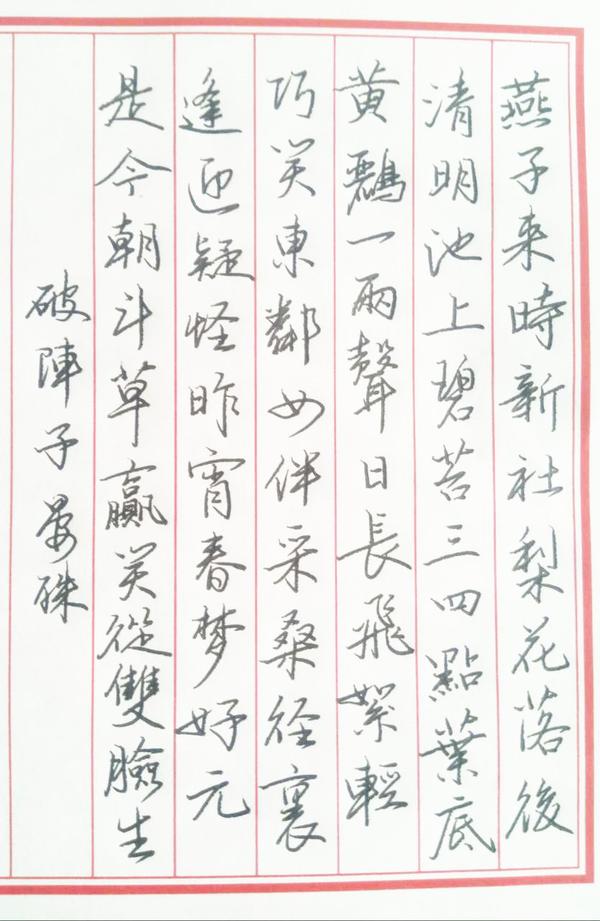 燕子来時新社梨花落後
清明池上碧苔三四點葉底
黄鸝一兩聲日長飛絮輕
巧笑東鄰女伴采桑径裏
逢迎疑怪昨宵春梦好元
是今朝斗草贏笑從雙臉生
破陣子晏殊